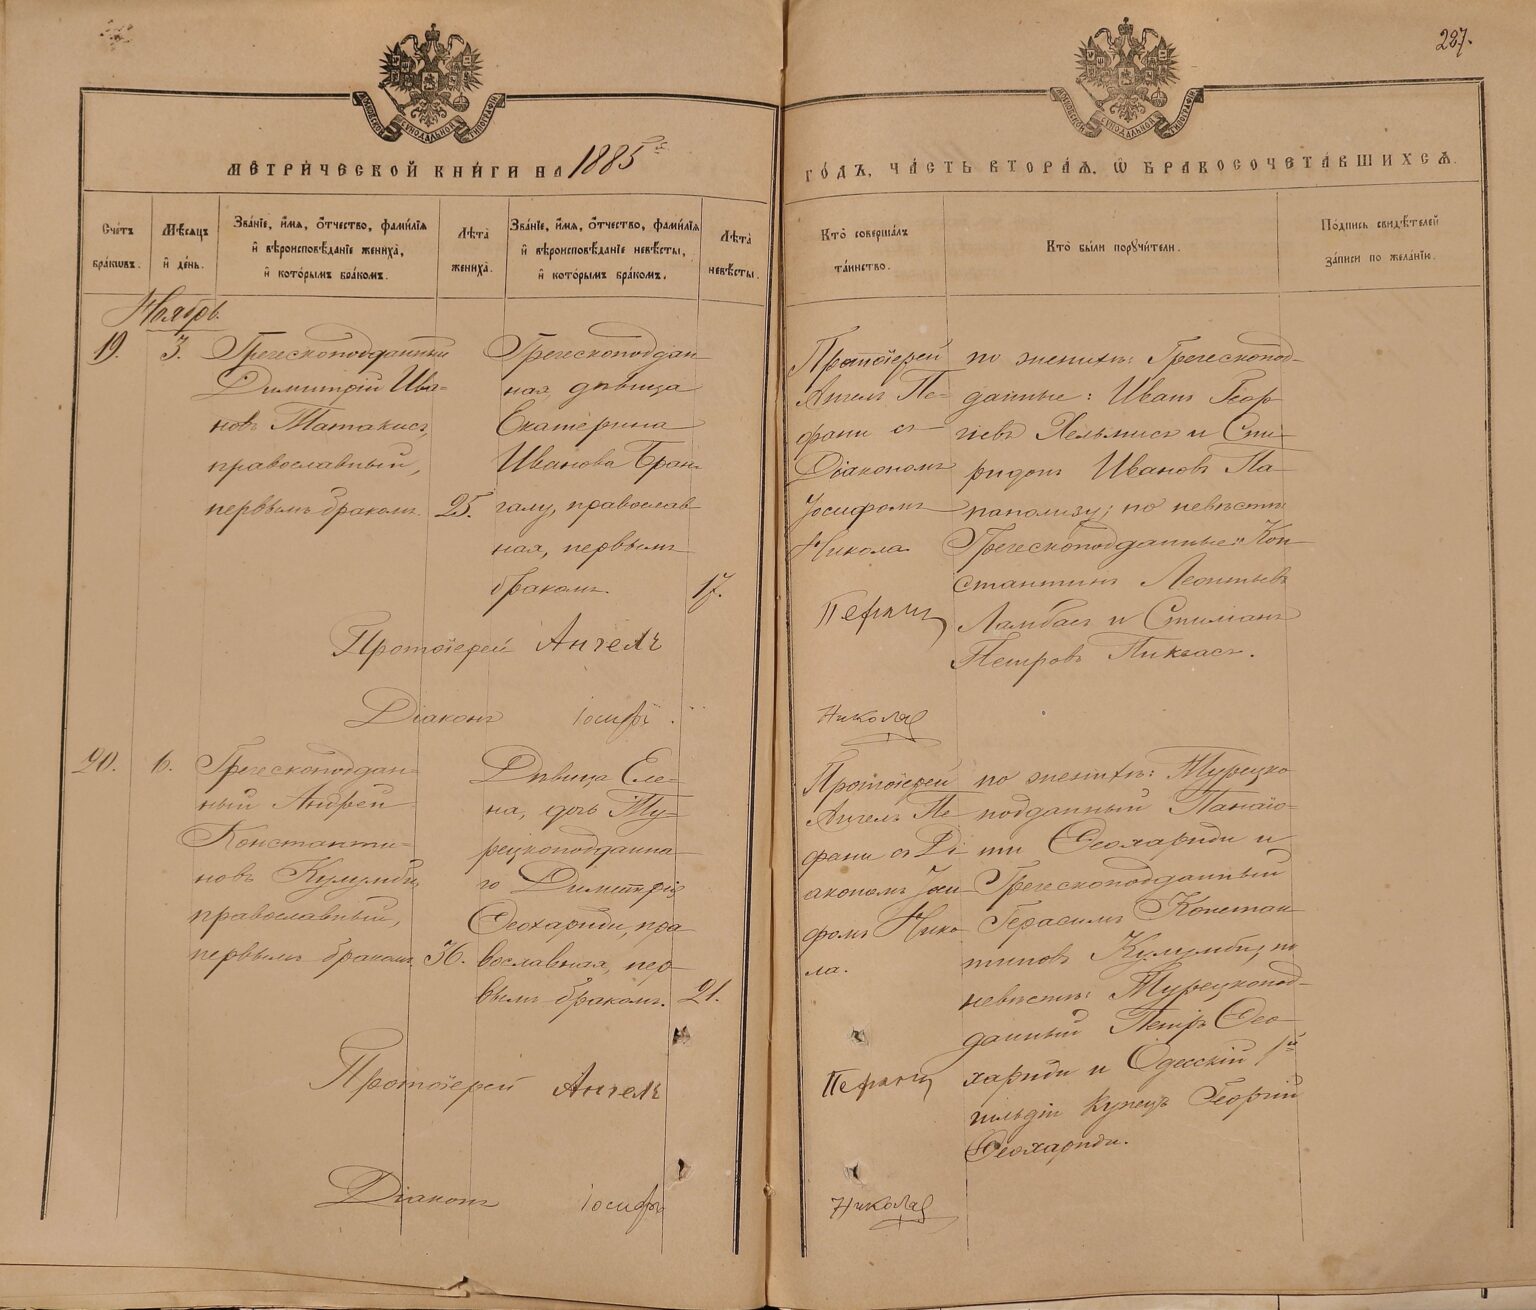 287.
МОСКОВСКОЙ СѴНОДАЛЬНОЙ ТИПОГРАФІИ
МОСКОВСКОЙ СѴНОДАЛЬНОЙ ТИПОГРАФІИ
МЕТРИЧЕСКОЙ КНИГИ НА 1885
ГОДЪ, ЧАСТЬ ВТОРАЯ, Ѡ БРАКОСОЧЕТАВШИХСЯ.
Счетъ
браковъ.
Мѣсяцъ
и день.
Званіе, имя, отчество, фамилія
и вѣроисповѣданіе жениха,
и которымъ бракомъ.
Лѣта
жениха.
Званіе, имя, отчество, фамилія
и вѣроисповѣданіе невѣсты,
и которымъ бракомъ.
Лѣта
невѣсты.
Кто совершалъ
таинство.
Кто были поручители.
Подпись свидѣтелей
записи по желанію.
Ноябрь
19.
3.
Греческоподданный
Димитрій Ива-
новъ Татакисъ,
православный,
первымъ бракомъ.
25.
Греческоподдан
ная дѣвица
Екатерина
Иванова Бран
галу, православ
ная, первымъ
бракомъ.
17.
Протоіерей
Ангелъ Пе-
фани съ
Діакономъ
Іосифомъ
Никола
по женихѣ: Греческопод-
данные: Иванъ Геор
гіевъ Хельмисъ и Спи-
ридонъ Ивановъ Па-
паполизу; по невѣстѣ
Греческоподданные: Кон
стантинъ Леонтьевъ
Ламбасъ и Стиліанъ
Петровъ Пиккасъ.
Протоіерей Ангелъ
Діаконъ Іосифъ
Николай
20.
6.
Греческоподдан-
ный Андрей
Константи-
новъ Кулумби,
православный,
первымъ бракомъ.
36.
Дѣвица Еле-
на, дочь Ту-
рецкоподданна-
го Димитрія
Ѳеохариди, пра
вославная, пер-
вымъ бракомъ.
21.
Протоіерей
Ангелъ Пе
фани съ Ді
акономъ Іоси
фомъ Нико
ла.
по женихѣ: Турецко
подданный Панаіо-
ти Ѳеохариди и
Греческоподданный
Герасимъ Констан
тиновъ Кулумби, по
невѣстѣ: Турецкопод-
данный Петръ Ѳео-
хариди и Одесскій 1й
гильдіи купецъ Георгій
Ѳеохариди.
Протоіерей Ангелъ
Діаконъ Іосифъ
Николай